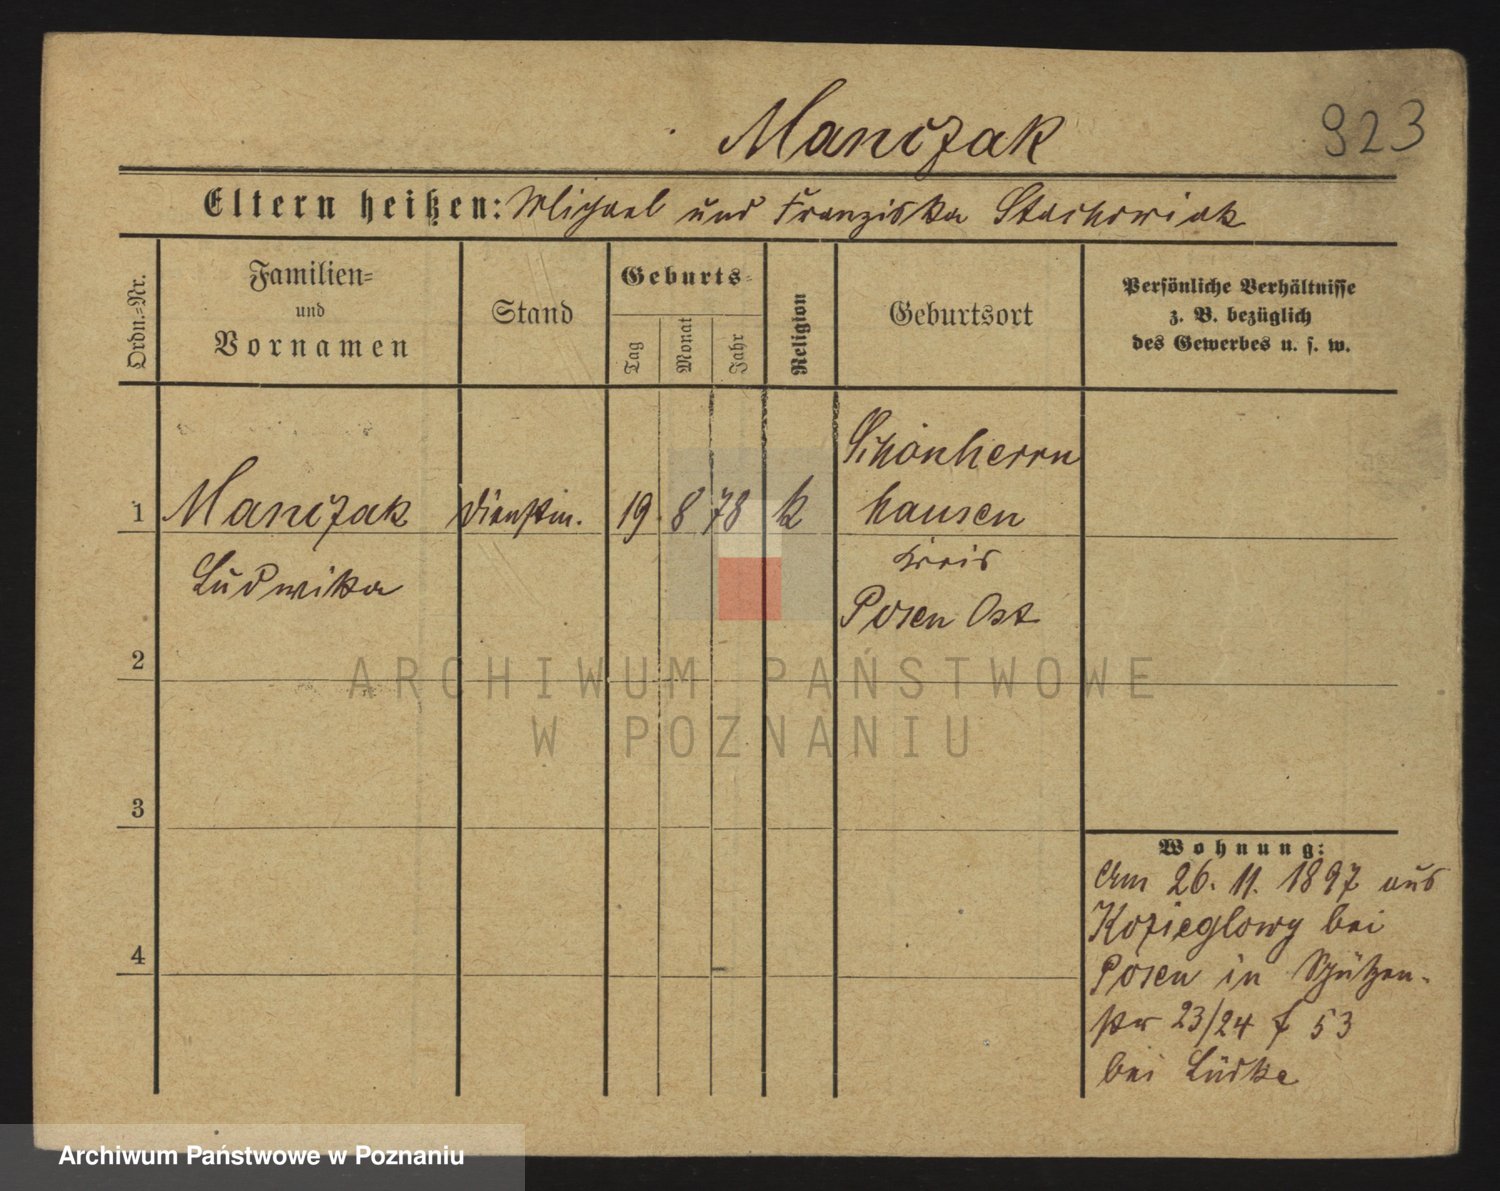 Manczak
923
Eltern heißen: Michael und Franziska Stachowiak
Ordn.-Nr.
Familien-
und
Vornamen
Stand
Geburts-
Tag
Monat
Jahr
Religion
Geburtsort
Persönliche Verhältnisse
z. B. bezüglich
des Gewerbes u. s. w.
1 Manczak Dienstm. 19. 8 78 k Schönherrn
hausen
Ludwika
Kreis
Posen Ost
2
3
4
Wohnung:
Am 26. 11. 1897 aus
Kozieglowy bei
Posen in Schützen-
str 23/24 f 53
bei Lüdke
ARCHIWUM PAŃSTWOWE
W POZNANIU
Archiwum Państwowe w Poznaniu